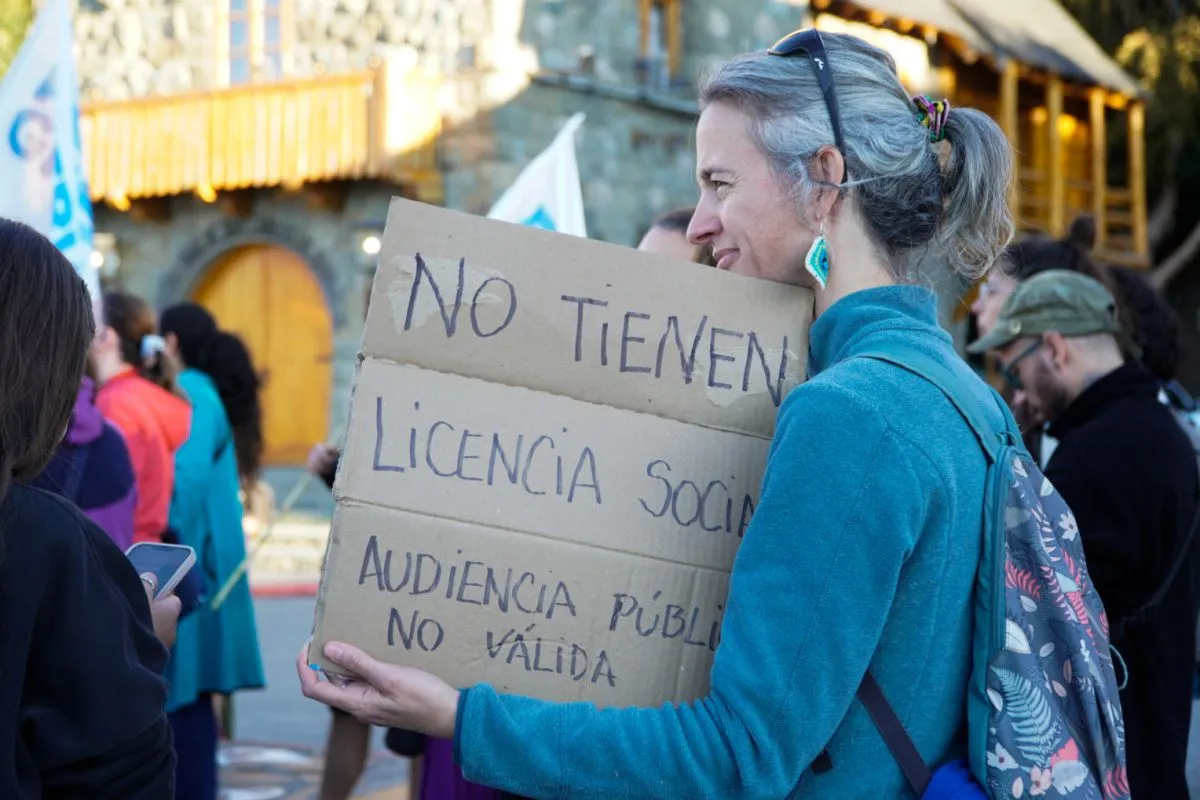 NO TIENEN
LICENCIA SOCIA
AUDIENCIA PÚBLI
NO VÁLIDA